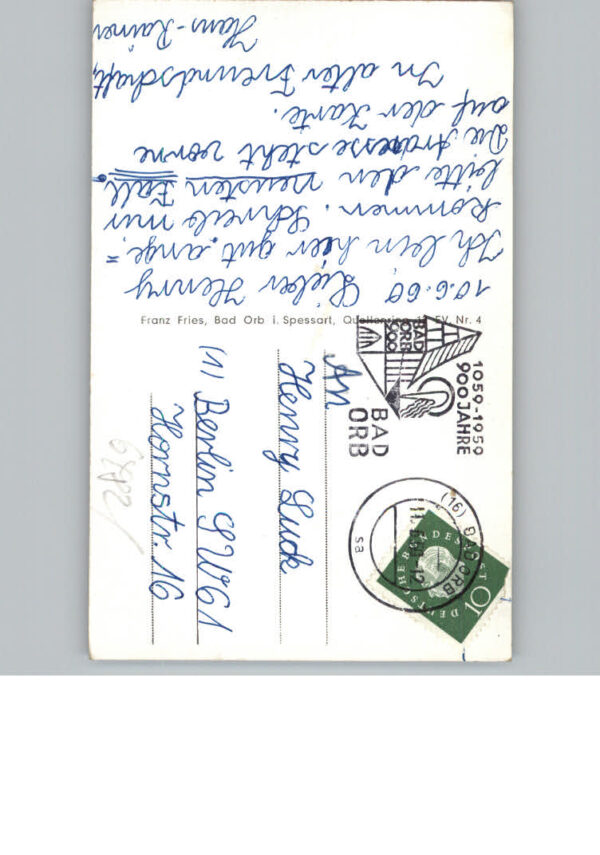 10.6.60 Lieber Henry
Ich bin hier gut ange=
kommen. Schreib mir
bitte den neusten Fall.
Die Adresse steht vorne
auf der Karte.
In alter Freundschaft,
Hans-Rainer
Franz Fries, Bad Orb i. Spessart, Quellenring EV. Nr. 4
1059-1959
900 JAHRE
BAD
ORB
900
BAD
ORB
(16) BAD ORB
sa
DEUTSCHE BUNDESPOST
10
An
Henry Luck
(1) Berlin SW61
Hornstr. 16